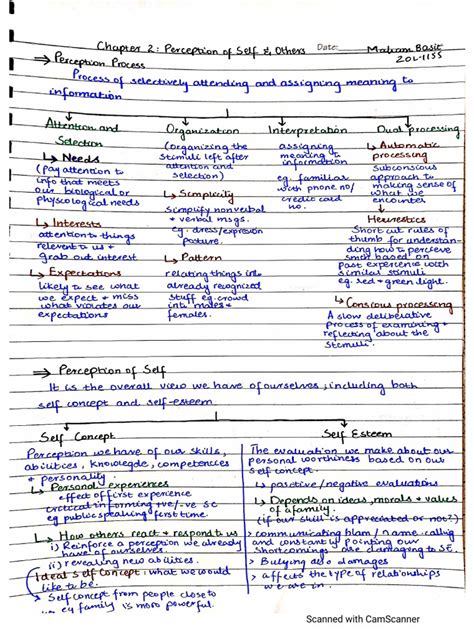 Chapter 2: Perception of Self & Others Date: Maham Basit
20L-1155
→ Perception Process
Process of selectively attending and assigning meaning to
information
Attention and
Selection
↳ Needs
(Pay attention to
info that meets
our biological or
physcological needs
↳ Interests
attention to things
relevent to us &
grab out interest
↳ Expectations
likely to see what
we expect & miss
what violates our
expectations
Organization
(Organizing the
stimuli left after
attention and
selection)
↳ Simplicity
Simplify nonverbal
& verbal msgs.
eg. dress/expression
posture.
↳ Pattern
relating things into
already recognized
stuff eg. crowd
into males &
females.
Interpretation
assigning
meaning to
information
eg. familiar
with phone no/
credit card
no.
Dual processing
↳ Automatic
processing
Subconscious
approach to
making sense of
what we
encounter
↳ Heurestics
Short cut rules of
thumb for understan-
ding how to percieve
smth based on
past experience with
similar stimuli
eg. red & green light.
↳ Conscious processing
A slow deliberative
process of examining &
reflecting about the
stimuli.
→ Perception of Self
It is the overall view we have of ourselves, including both
self concept and self-esteem.
Self Concept
Perception we have of our skills,
abilities, knowlegde, competences
& personality.
↳ Personal experiences
effect of first experience
critical informing +ve/-ve SC
eg public speaking first time.
↳ How others react & respond to us
i) Reinforce a perception we already
have of ourselves.
ii) revealing new abilities.
(Ideal Self Concept: what we would
like to be.
> Self concept from people close to
... eg family is more powerful.
Self Esteem
The evaluation we make about our
personal worthiness based on our
self concept.
↳ positive/negative evaluations
↳ Depends on ideas, morals & values
of a family.
(if our skill is appreciated or not?)
> communicating blam / name calling
and constantly pointing our
shortcomings are damaging to SE.
> Bullying also damages
> affects the type of relationships
we are in.
Scanned with CamScanner